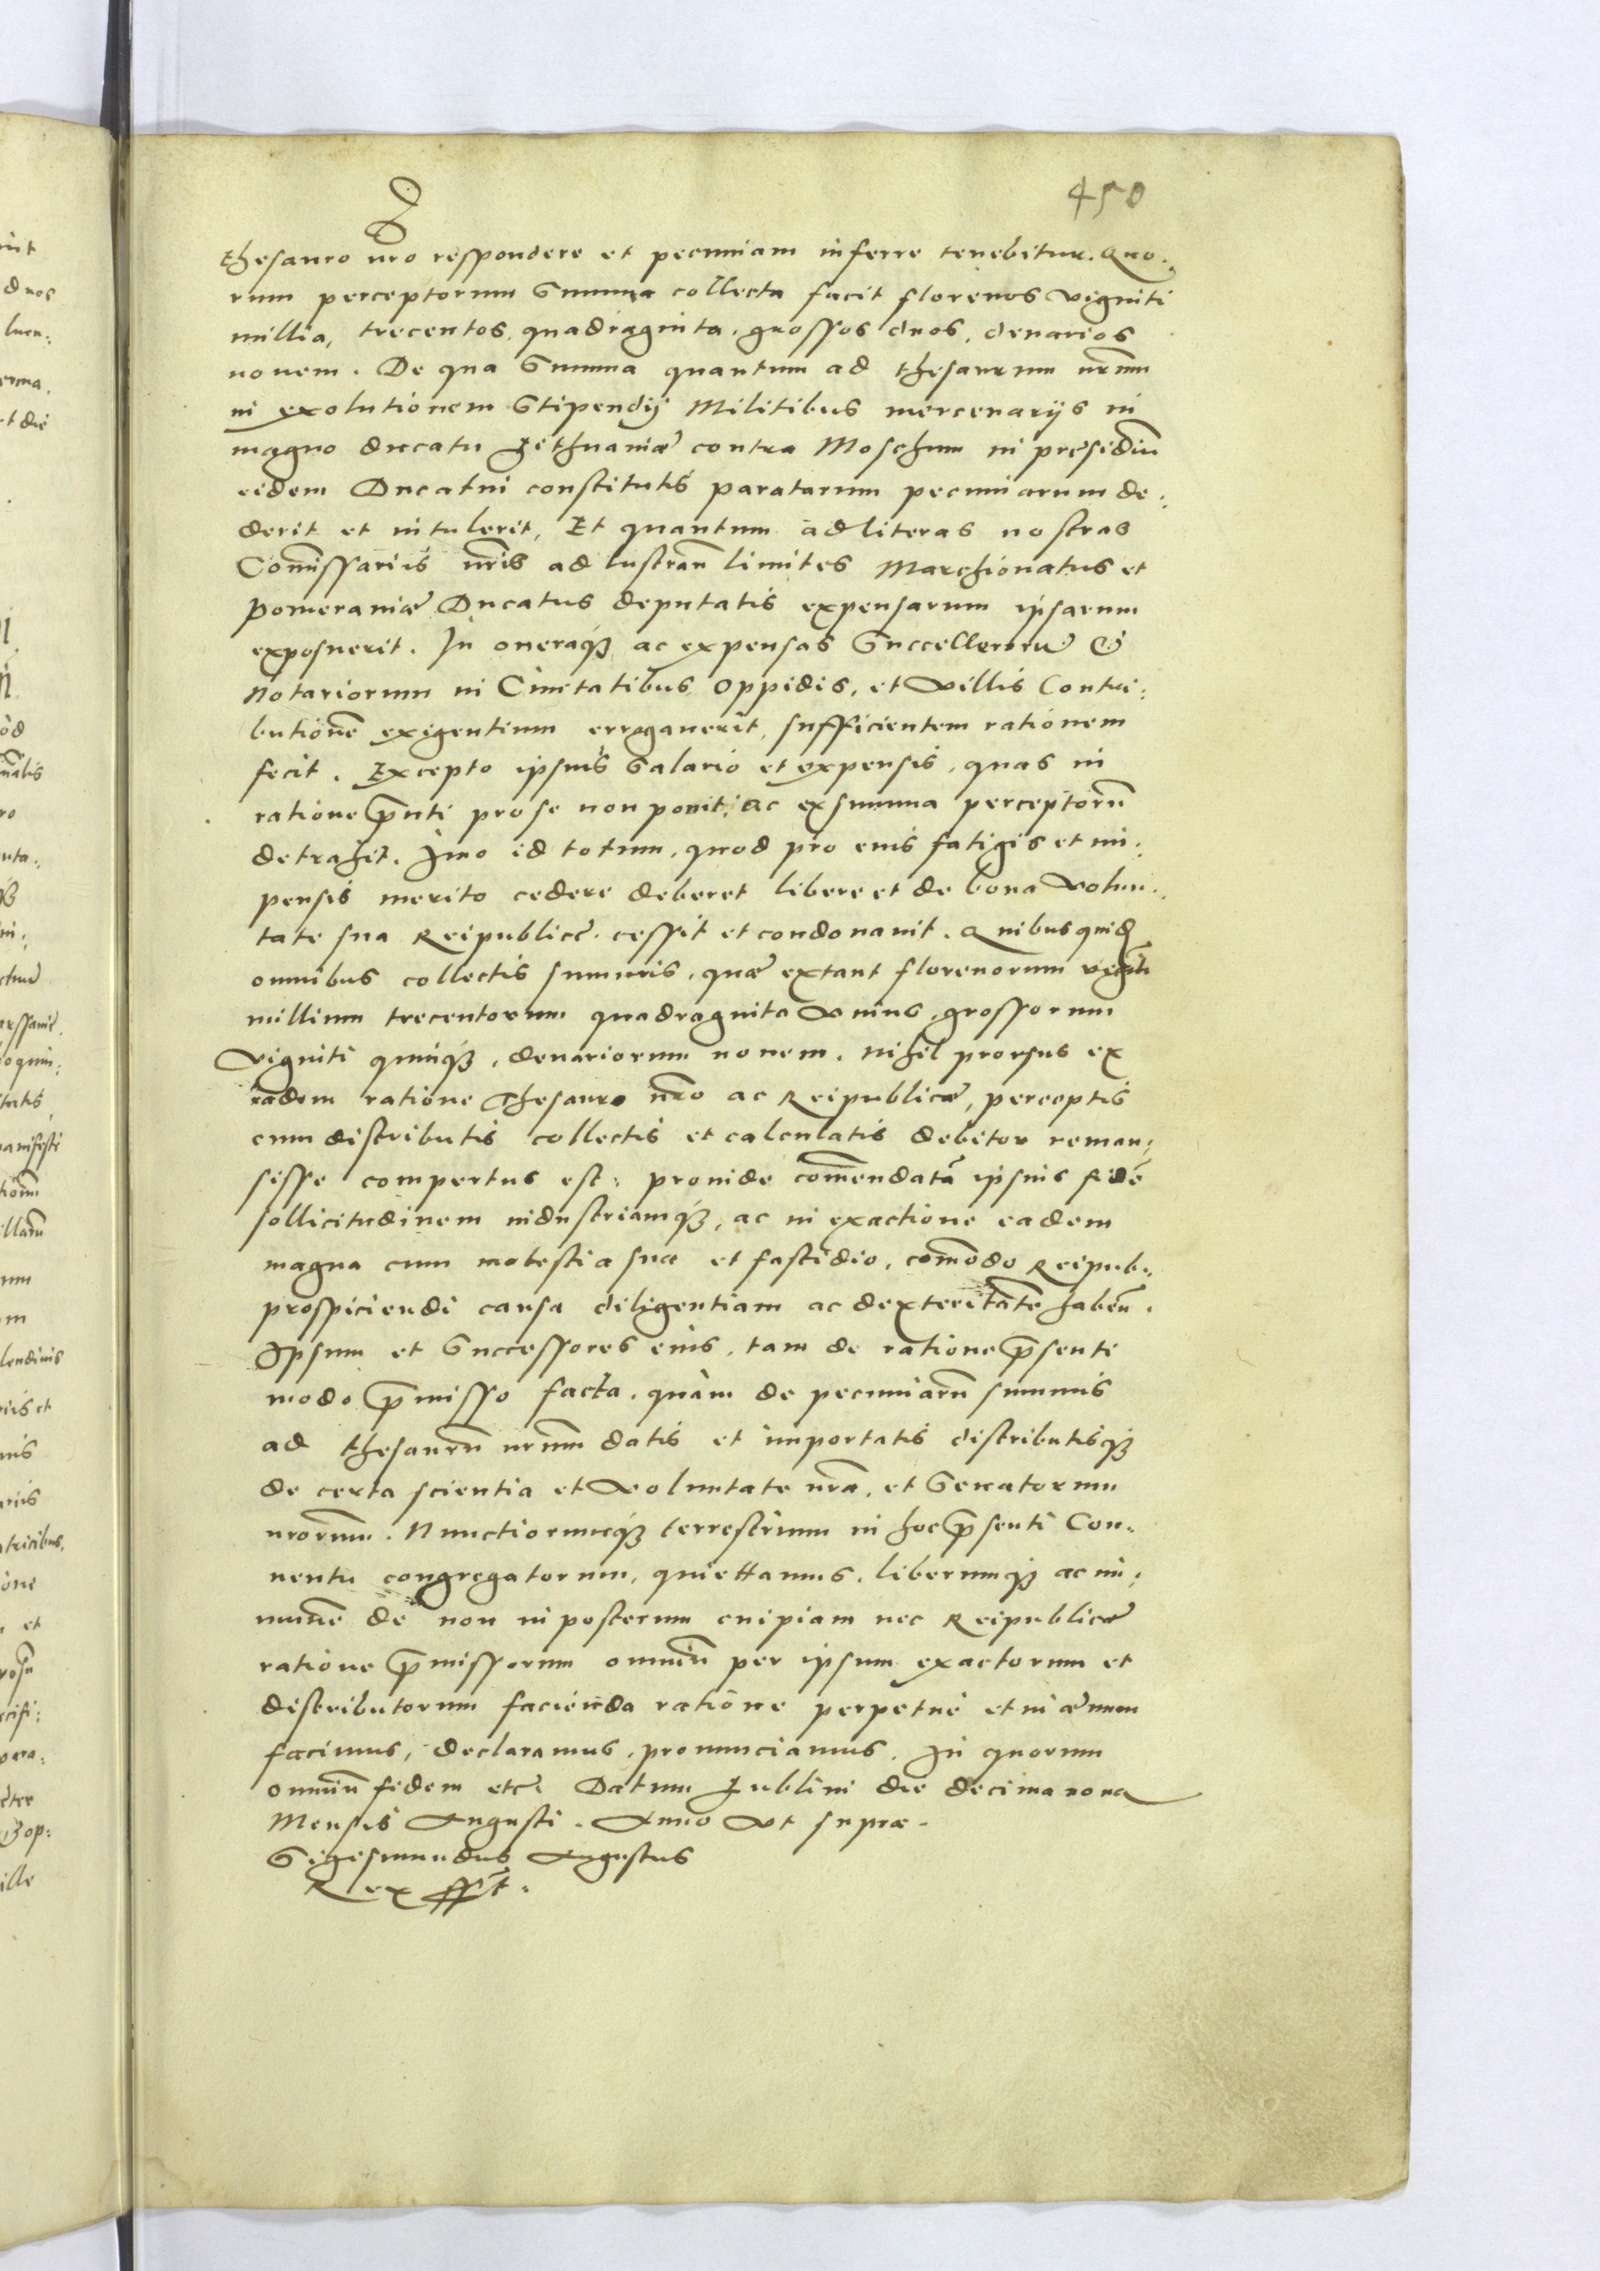 450
thesauro nro respondere et pecuniam inferre tenebitur. Quo:
rum perceptorum Summa collecta facit florenos viginti
millia, trecentos, quadraginta, grossos duos, denarios
novem. De qua Summa quantum ad thesaurum nrum
in exolutionem Stipendij Militibus mercenarijs in
magno ducatu Lithuaniæ contra Moschum in præsidiū
eidem Ducatui constitutis paratarum pecuniarum de:
derit et intulerit, Et quantum ad literas nostras
Comissariis nris ad lustran limites Marchionatus et
Pomeraniæ Ducatus deputatis expensarum ipsarum
exposuerit. In oneraq3 ac expensas Succellectorū &
Notariorum in Ciuitatibus Oppidis, et Villis Contri:
butionē exigentium errogauerit, sufficientem rationem
fecit. Excepto ipsius Salario et expensis, quas in
ratione pnti pro se non ponit, ac ex summa perceptorū
detrahit. Imo id totum, quod pro eius fatigis et im:
pensis merito cedere deberet libere et de bona Volun:
tate sua Reipublicę cessit et condonauit. Quibus quid
omnibus collectis summis, quæ extant florenorum viginti
millium trecentorum quadraginta Vnius, grossorum
Viginti quinq3, denariorum nouem. Nihil prorsus ex
eadem ratione Thesauro nro ac Reipublicæ, perceptis
cum distributis collectis et calculatis debitor reman:
sisse compertus est. prouide comendatā ipsius fidē
sollicitudinem industriamq3, ac in exactione eadem
magna cum molestia sua et fastidio, comodo Reipub:
prospiciendi causa diligentiam ac dexteritatē haben.
Ipsum et Successores eius, tam de ratione psente
modo pmisso facta, quàm de pecuniarū summis
ad thesaurū nrum datis et importatis distributisq3
de certa scientia et Voluntate nra, et Senatorum
nrorum. Nunctiorumq3 terrestrium in hoc psenti Con:
uentu congregatorum, quiettamus, liberumq3 ac im:
munē de non in posterum cuipiam nec Reipublicæ
ratione pmissorum omniū per ipsum exactorum et
distributorum facienda ratione perpetuè et in æuum
facimus, declaramus, pronunciamus. In quorum
omniū fidem etc. Datum Lublini die decima nona
Mensis Augusti. Anno Vt supra.
Sigismundus Augustus
Rex sst.